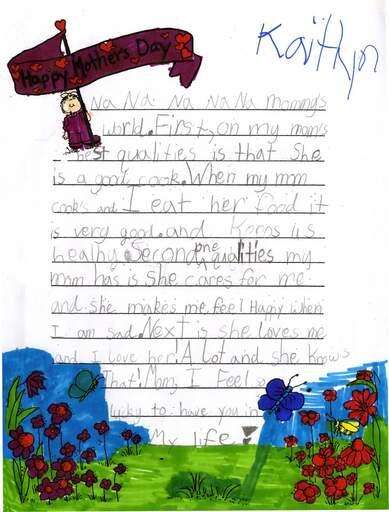 Kaitlyn
Happy Mothers Day
Na Na Na Na Na mommys
world. First, on my mom's
best qualities is that She
is a good cook. When my mom
cooks and I eat her food it
is very good. and Keeps us
healhy. Second one qualities my
mom has is She cares for me
and she makes me feel Happy when
I am sad. Next is she loves me
and I love her! A Lot and she Knows
That! Mom, I Feel so
lucky to have you in
My life